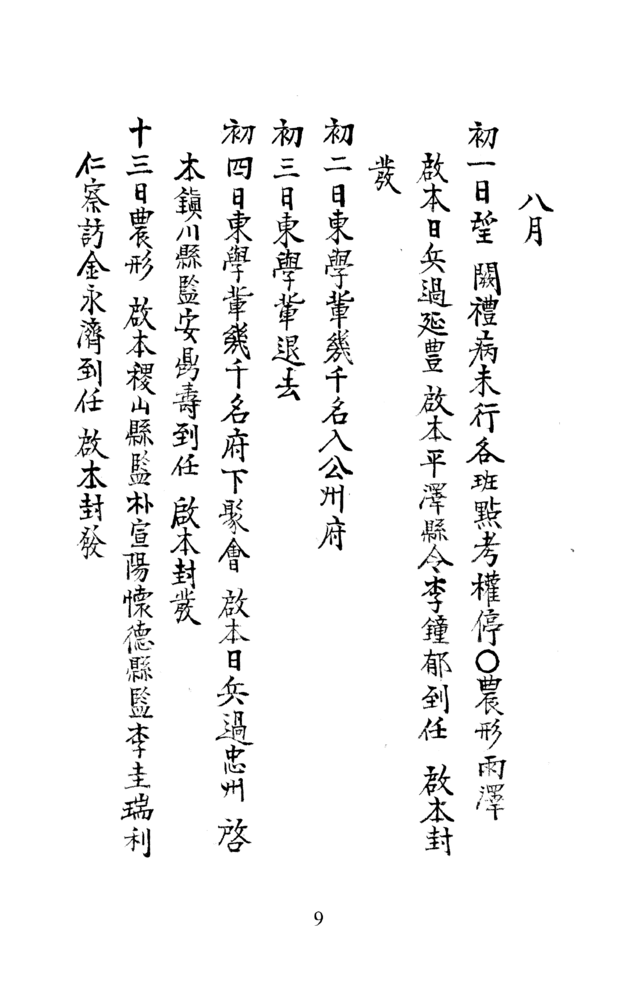 八月
初一日望 闕禮病未行各班點考權停〇農形雨澤
啟本日兵過延豊 啟本平澤縣令李鐘郁到任 啟本封
發
初二日東學輩幾千名入公州府
初三日東學輩退去
初四日東學輩幾千名府下聚會 啟本日兵過忠州 啓
本鎭川縣監安鼎壽到任 啟本封發
十三日農形 啟本稷山縣監朴宣陽懷德縣監李圭瑞利
仁察訪金永濟到任 啟本封發
9